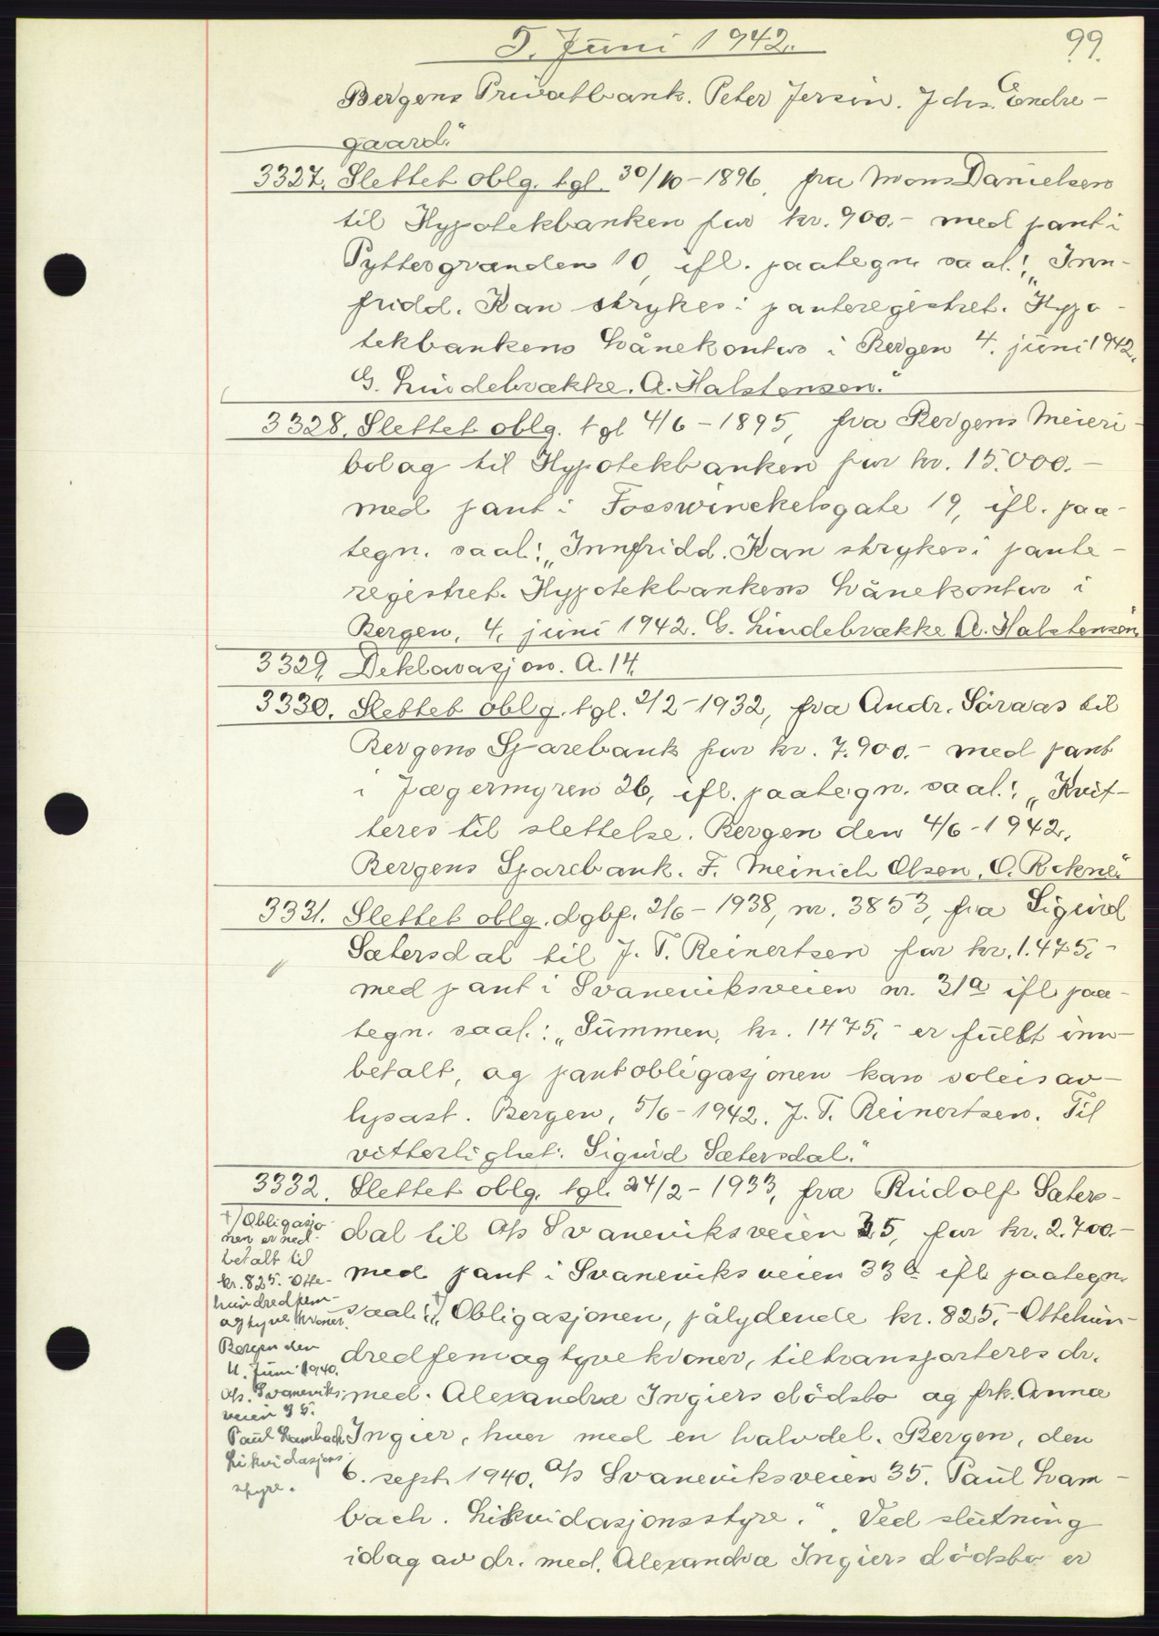 5. Juni 1942.
99.
Bergens Privatbank. Peter Jersin. Johs. Endre-
gaard."
3327. Slettet oblg. tgl. 30/10-1896, fra Mons Danielsen
til Hypotekbanken for kr. 900.- med pant i
Pyttergranden 10, ifl. paategn. saal.: „Inn-
fridd. Kan strykes i panteregistret. Hypo-
tekbankens Lånekontor i Bergen 4. juni 1942.
G. Lindebrække. A. Halstensen."
3328. Slettet oblg. tgl 4/6-1895, fra Bergens Meieri-
bolag til Hypotekbanken for kr. 15.000.-
med pant i Fosswinckelsgate 19, ifl. paa-
tegn. saal.: „Innfridd. Kan strykes i pante-
registret. Hypotekbankens Lånekontor i
Bergen, 4. juni 1942. G. Lindebrække A. Halstensen"
3329. Deklarasjon. A. 14.
3330. Slettet oblg. tgl. 2/2-1932, fra Andr. Söraas til
Bergens Sparebank for kr. 7.900.- med pant
i Jægermyren 26, ifl. paategn. saal.: „Kvit-
teres til slettelse. Bergen den 4/6-1942.
Bergens Sparebank. F. Meinich Olsen. O. Rekne"
3331. Slettet oblg. dgbf. 2/6-1938, nr. 3853, fra Sigurd
Sætersdal til J. T. Reinertsen for kr. 1.475.-
med pant i Svaneviksveien nr. 31a ifl paa-
tegn. saal.: „Summen, kr. 1475.- er fullt inn-
betalt, og pantobligasjonen kan soleis av-
lysast. Bergen, 5/6-1942. J. T. Reinertsen. Til
vitterlighet: Sigurd Sætersdal."
3332. Slettet oblg. tgl. 24/2-1933, fra Rudolf Sæters-
dal til A/s Svaneviksveien 35, for kr. 2.700.-
med pant i Svaneviksveien 33 ifl paategn.
saal.: +) „Obligasjonen, pålydende kr. 825.- Ottehun-
dredfemogtyvekroner, tiltransporteres dr.
med. Alexandra Ingiers dödsbo og frk. Anna
Ingier, hver med en halvdel. Bergen, den
6. sept. 1940. A/s Svaneviksveien 35. Paul Lam-
bach. Likvidasjonsstyre." „Ved slutning
idag av dr. med. Alexandra Ingiers dödsbo er
+) Obligasjo-
nen er ned-
betalt til
kr. 825.- Otte-
hundredfem-
ogtyve kroner.
Bergen den
4. Juni 1940.
A/s. Svaneviks-
veien 35.
Paul Lambach
Likvidasjons-
styre.